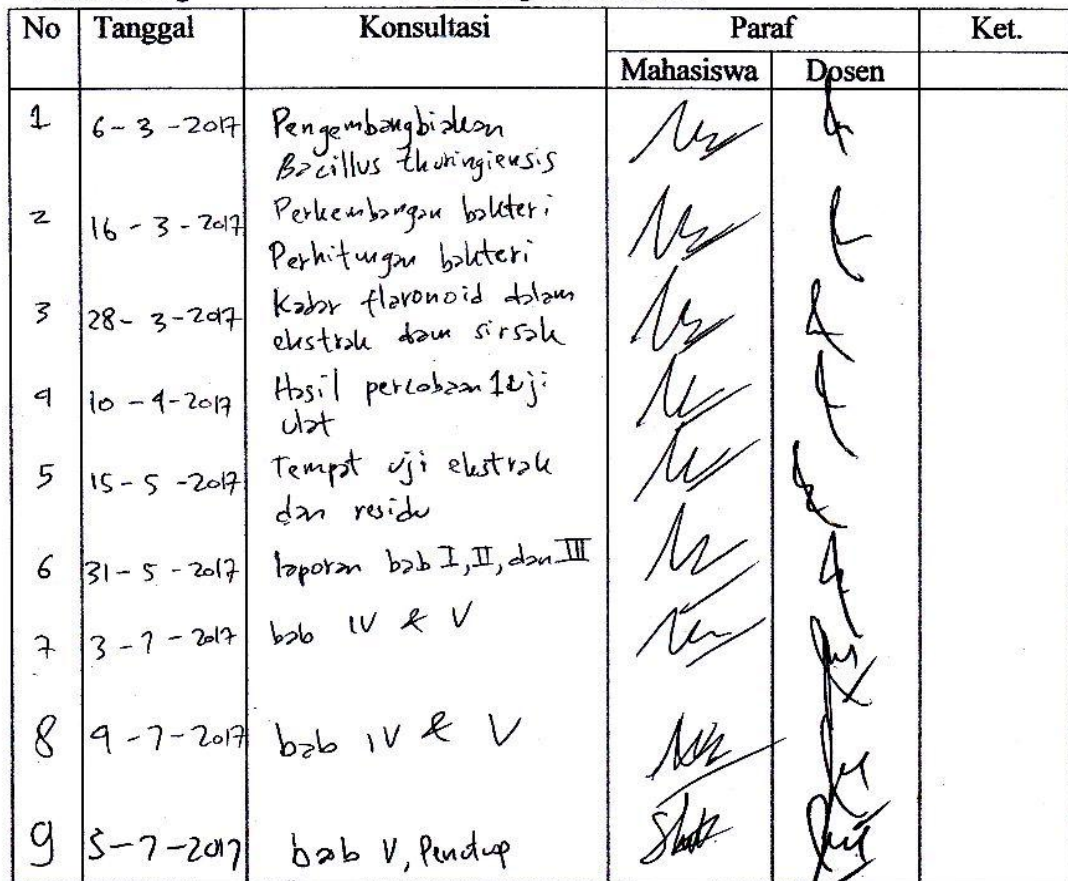 No Tanggal Konsultasi Paraf Ket.
Mahasiswa Dosen
1 6-3-2017 Pengembangbiakan
Bacillus thuringiensis
2 16-3-2017 Perkembangan bakteri
Perhitungan bakteri
3 28-3-2017 Kadar flavonoid dalam
ekstrak daun sirsak
4 10-4-2017 Hasil percobaan 1 uji
ulat
5 15-5-2017 Tempat uji ekstrak
dan residu
6 31-5-2017 laporan bab I, II, dan III
7 3-7-2017 bab IV & V
8 4-7-2017 bab IV & V
9 5-7-2017 bab V, Penutup